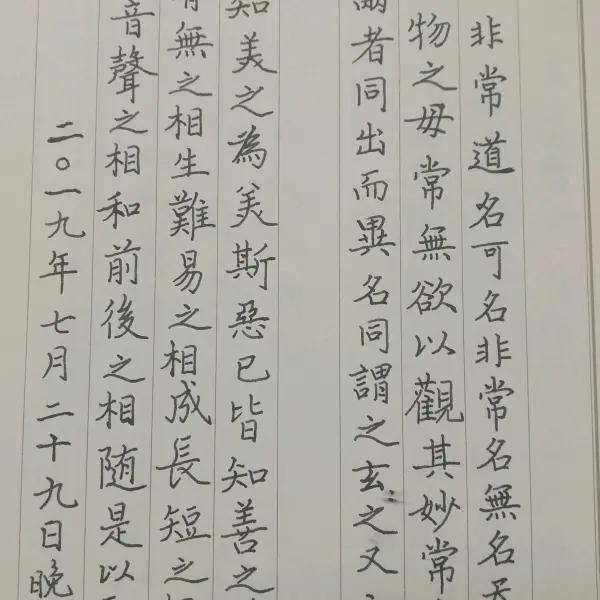 非常道名可名非常名無名天
物之母常無欲以觀其妙常
者同出而異名同謂之玄之又
知美之為美斯惡已皆知善之
無之相生難易之相成長短之
音聲之相和前後之相随是以
二〇一九年七月二十九日晚